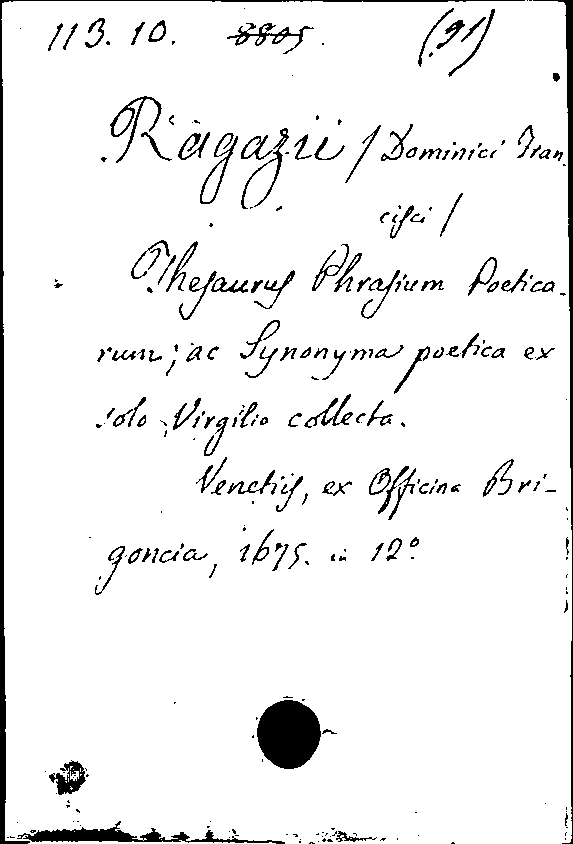 113. 10. 8805. (91)
Ragazii / Dominici Fran
cisci /
Thesaurus Phrasium Poetica-
rum; ac Synonyma poetica ex
solo Virgilio collecta.
Venetiis, ex Officina Bri-
goncia, 1675. in 12°